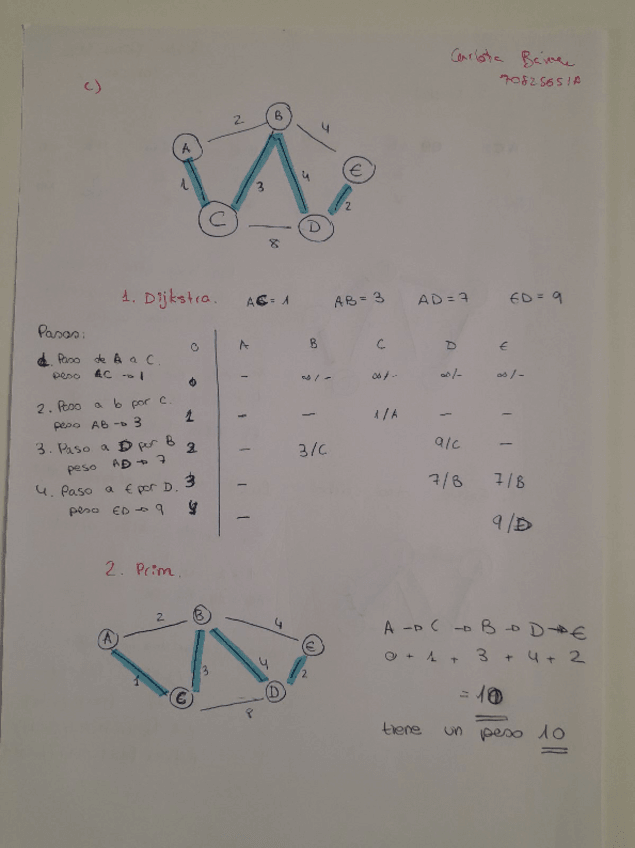 Carlota
c)
70825651A
B
2
4
A
E
1
3
4
2
C
D
8
1. Dijkstra. AC = 1 AB = 3 AD = 7 ED = 9
Pasos:
0 A B C D E
1. Paso de A a C.
peso AC → 1
0 - ∞/- ∞/- ∞/- ∞/-
2. Paso a b por C.
peso AB → 3
1 - - 1/A - -
3. Paso a D por B
peso AD → 7
2 - 3/C 9/C -
4. Paso a E por D.
peso ED → 9
3 - 7/B 7/B
4 - 9/D
2. Prim.
B
2
4
A
E
1
3
4
2
C
D
8
A → C → B → D → E
0 + 1 + 3 + 4 + 2
= 10
tiene un peso 10